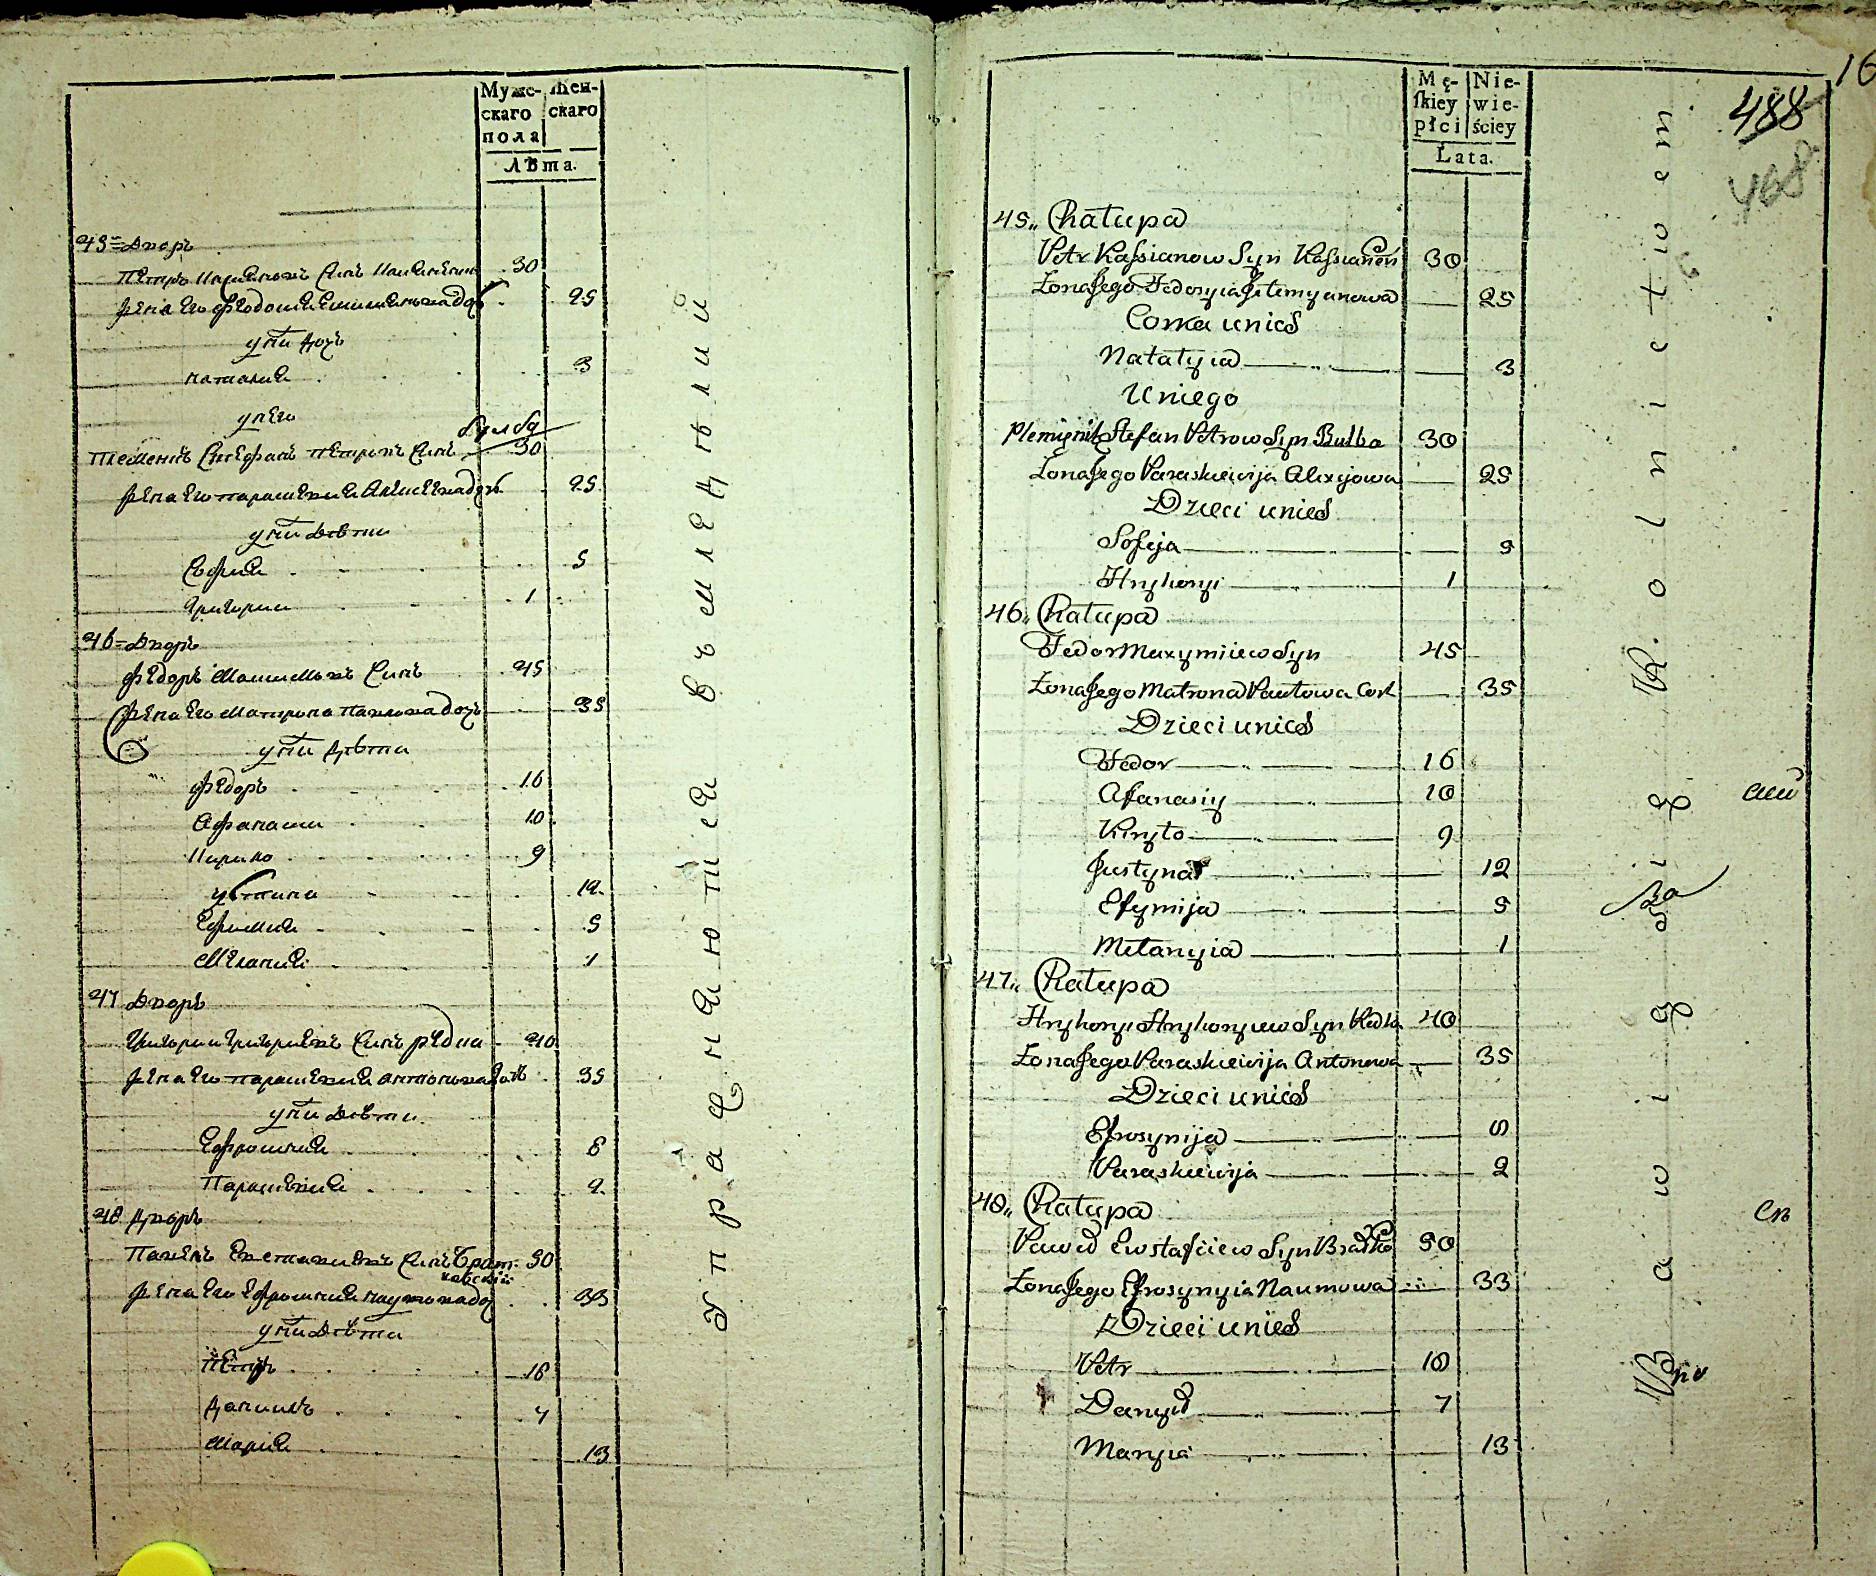 Мужс- Жен-
скаго скаго
пола
Лѣта.
45 Дворъ
Петръ Касияновъ Синъ 30
жена Его Феодосия Емилиянова доч 25
у них доч
наталия 3
у него
булба
племенникъ Стефанъ Петровъ Синъ 30
жена Его параскевия Алексѣева доч 25
у них дѣти
София 5
григории 1
46 Дворъ
Федоръ Максимовъ Синъ 45
жена Его Матрона павлова доч 35
у них дѣти
Федоръ 16
Афанасии 10
Кирило 9
устина 12
Ефимия 5
Мелания 1
47 Дворъ
Григории григориевъ Синъ редка 40
жена Его параскевия антонова доч 35
у них дѣти
Ефросиния 8
Параскевия 2
48 Дворъ
Павелъ Евстафиевъ Синъ Брат- 50
ковский
жена Его Ефросиния наумова доч 33
у них дѣти
петръ 18
даниилъ 7
мария 13
Упражняются въ земледѣлии
16
Mę- Nie-
skiey wie-
płci ściey
Lata.
488
468
45,, Chałupa
Petr Kassianow Syn Kassianoń 30
Zona Jego Fedosyia Jstemyanowa 25
Corka unich
Natalyia 3
Uniego
Plemięnik Stefan Petrow Syn Bulba 30
Zona Jego Paraskiewija Alexijowa 25
Dzieci unich
Sofija 5
Hryhoryi 1
46,, Chałupa
Fedor Maxymiiew Syn 45
Zona Jego Matrona Pawłowa Cork 35
Dzieci unich
Fedor 16
Afanasiy 10
Kiryło 9
Justyna 12
Efymija 5
Melanyia 1
47,, Chałupa
Hryhoryi Hryhoryiew Syn Redka 40
Zona Jego Paraskiewija Antonowa 35
Dzieci unich
Efrosynija 8
Paraskiewija 2
48,, Chałupa
Paweł Ewstafiiew Syn Bratko 50
Zona Jego Efrosynyia Naumowa 33
Dzieci unich
Petr 18
Danyił 7
Maryia 13
Bawią się Rolnictwem